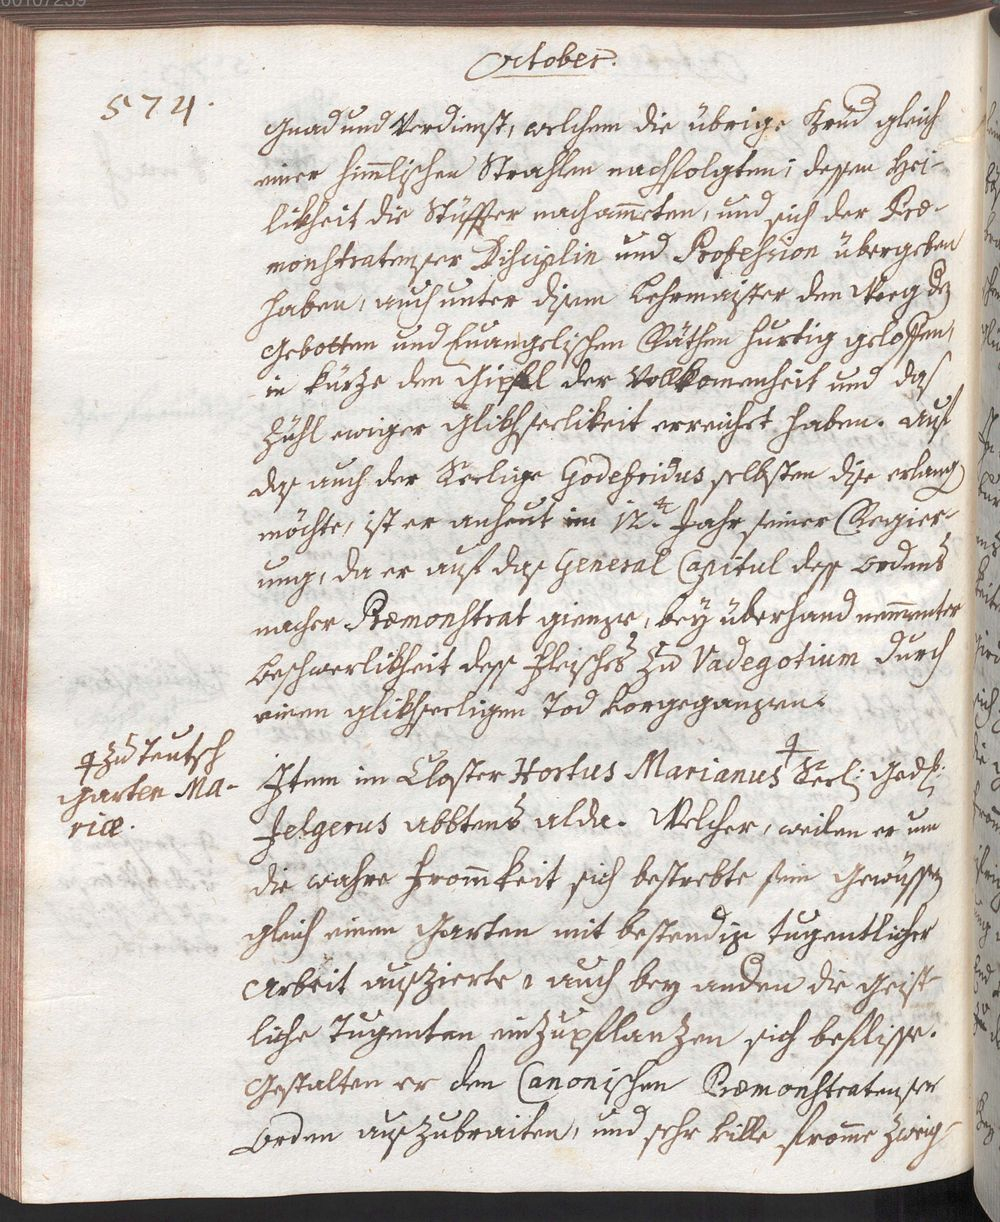 00107239
October.
574.
Gnad und Verdienst, welchem die übrige Brüd gleich
einer himmlischen Strahlen nachfolgten; dessen Hei-
likheit die Stüffter nachammeten, und sich der Præ-
monstratenser Disciplin und Profession übergeben
haben, auch unter disem Lehrmaister den Weeg der
Gebotten und Evangelischen Räthen hurtig geloffen,
in kürze den Gipfel der Vollkomenheit und das
Zühl ewiger Glikhseelikeit erreichet haben. Auf
das auch der Seelige Godefridus selbsten dise erlang
möchte, ist er anheut im 12.t Jahr seiner Regier-
ung, da er auf das General Capitul dess Ordens
nacher Præmonstrat gienge, bey überhand nemmenter
Beschwerlikheit dess Fleisches zu Vadegotium durch
einen glikhseeligen Tod vorgegangen.
‡ zu Teutsch
Garten Ma-
riæ.
Item im Closter Hortus Marianus ‡ Seel: Ged:
Jelgerus Abbtens alda. Welcher, weilen er um
die wahre Frommkeit sich bestrebte sein Gewüssen
gleich einen Garten mit bestendige tugentlicher
Arbeit auszierte, auch bey anden die Geist-
liche Tugenten einzupflanzen sich beflisse.
Gestalten er den Canonischen Præmonstratenser
Orden auszubraiten, und sehr ville fromme Zweig-